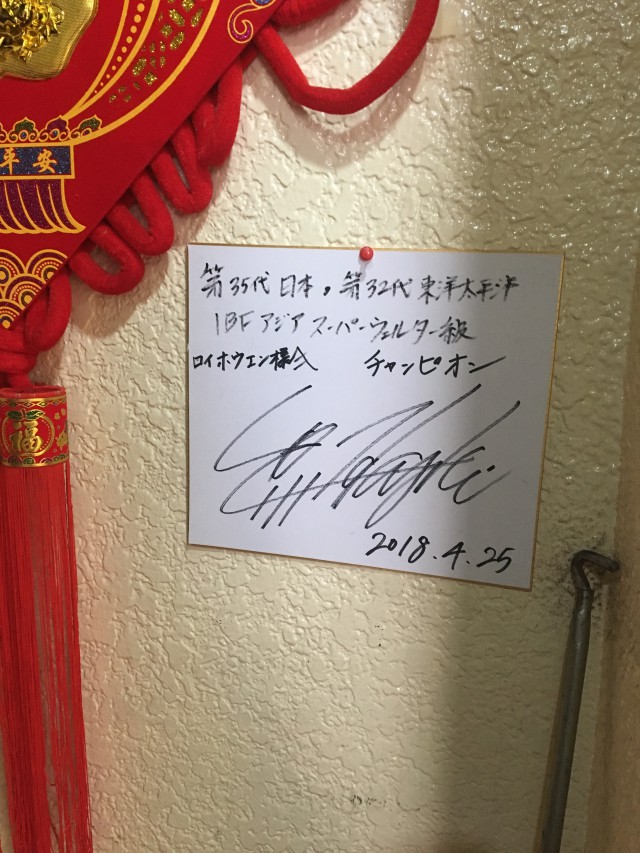 平安
福
第35代日本、第32代東洋太平洋
IBFアジアスーパーウェルター級
ロイホウエン様へ チャンピオン
2018.4.25